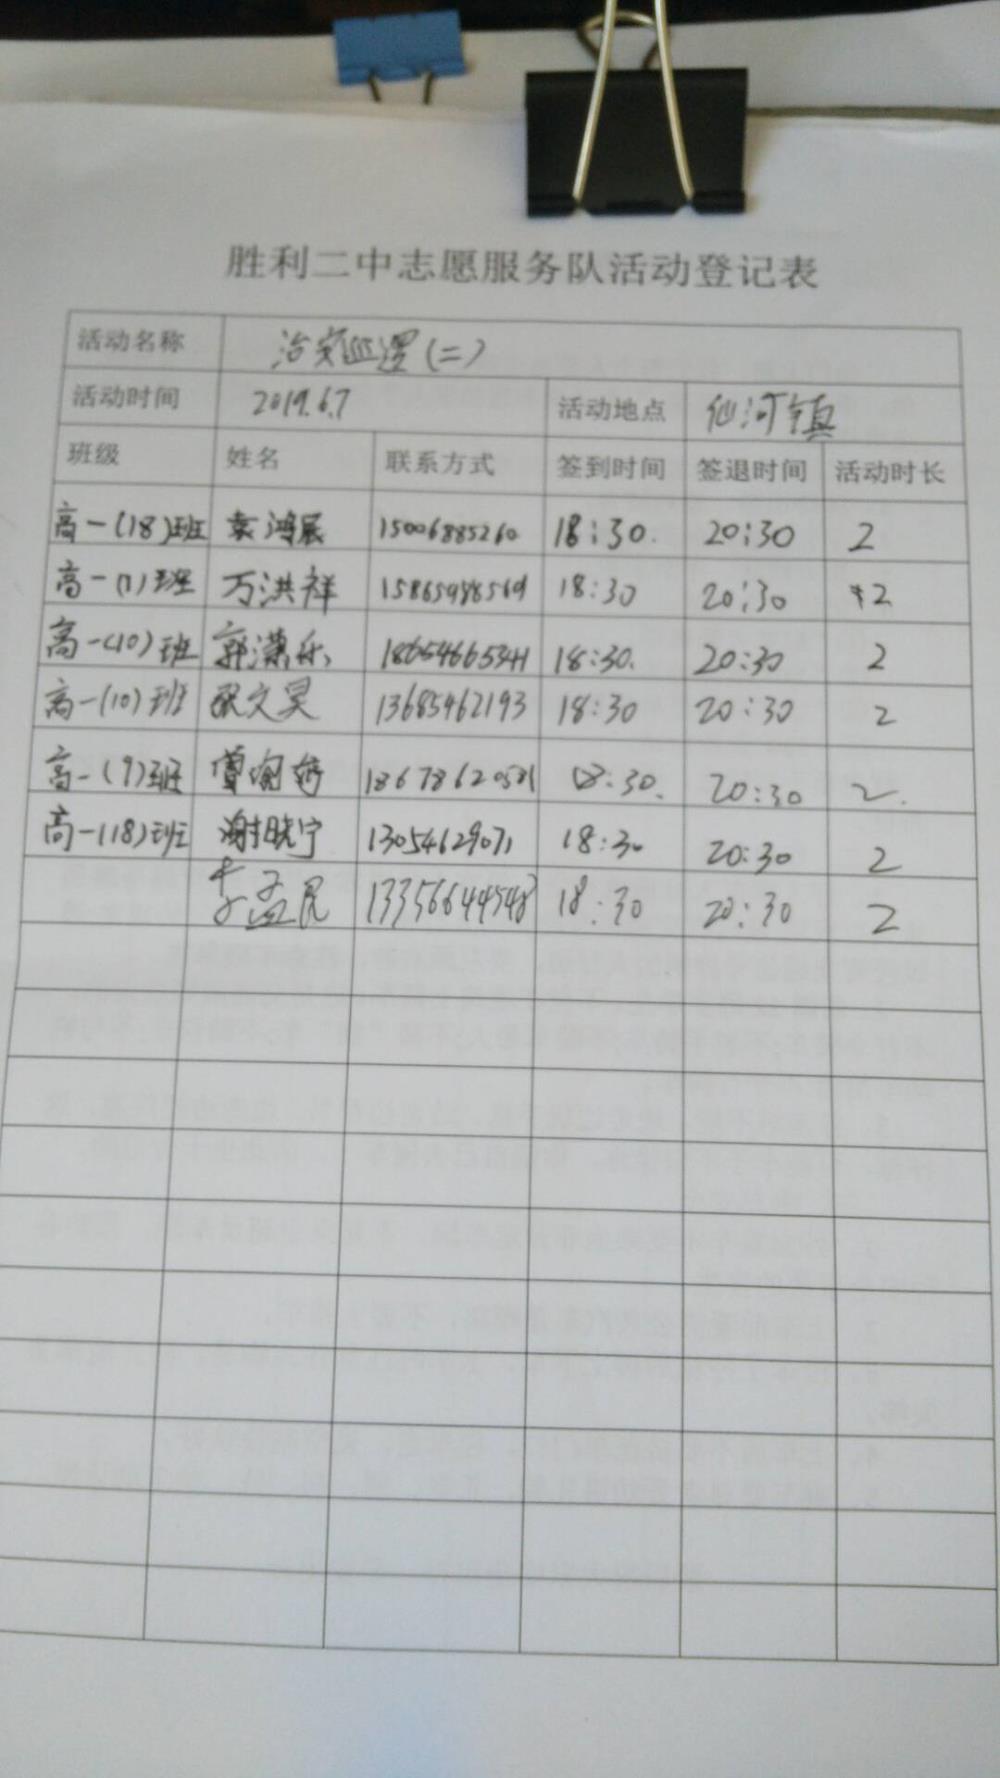 胜利二中志愿服务队活动登记表
活动名称 治安巡逻(二)
活动时间 2019.6.7 活动地点 仙河镇
班级 姓名 联系方式 签到时间 签退时间 活动时长
高一(18)班 袁鸿展 15006885260 18:30. 20:30 2
高一(1)班 万洪祥 15865988569 18:30 20:30 2
高一(10)班 郭潇乐 18654665341 18:30. 20:30 2
高一(10)班 文昊 13685462193 18:30 20:30 2
高一(9)班 18:30. 20:30 2.
高一(18)班 谢晓宁 13054629071 18:30 20:30 2
李孟民 18:30 20:30 2